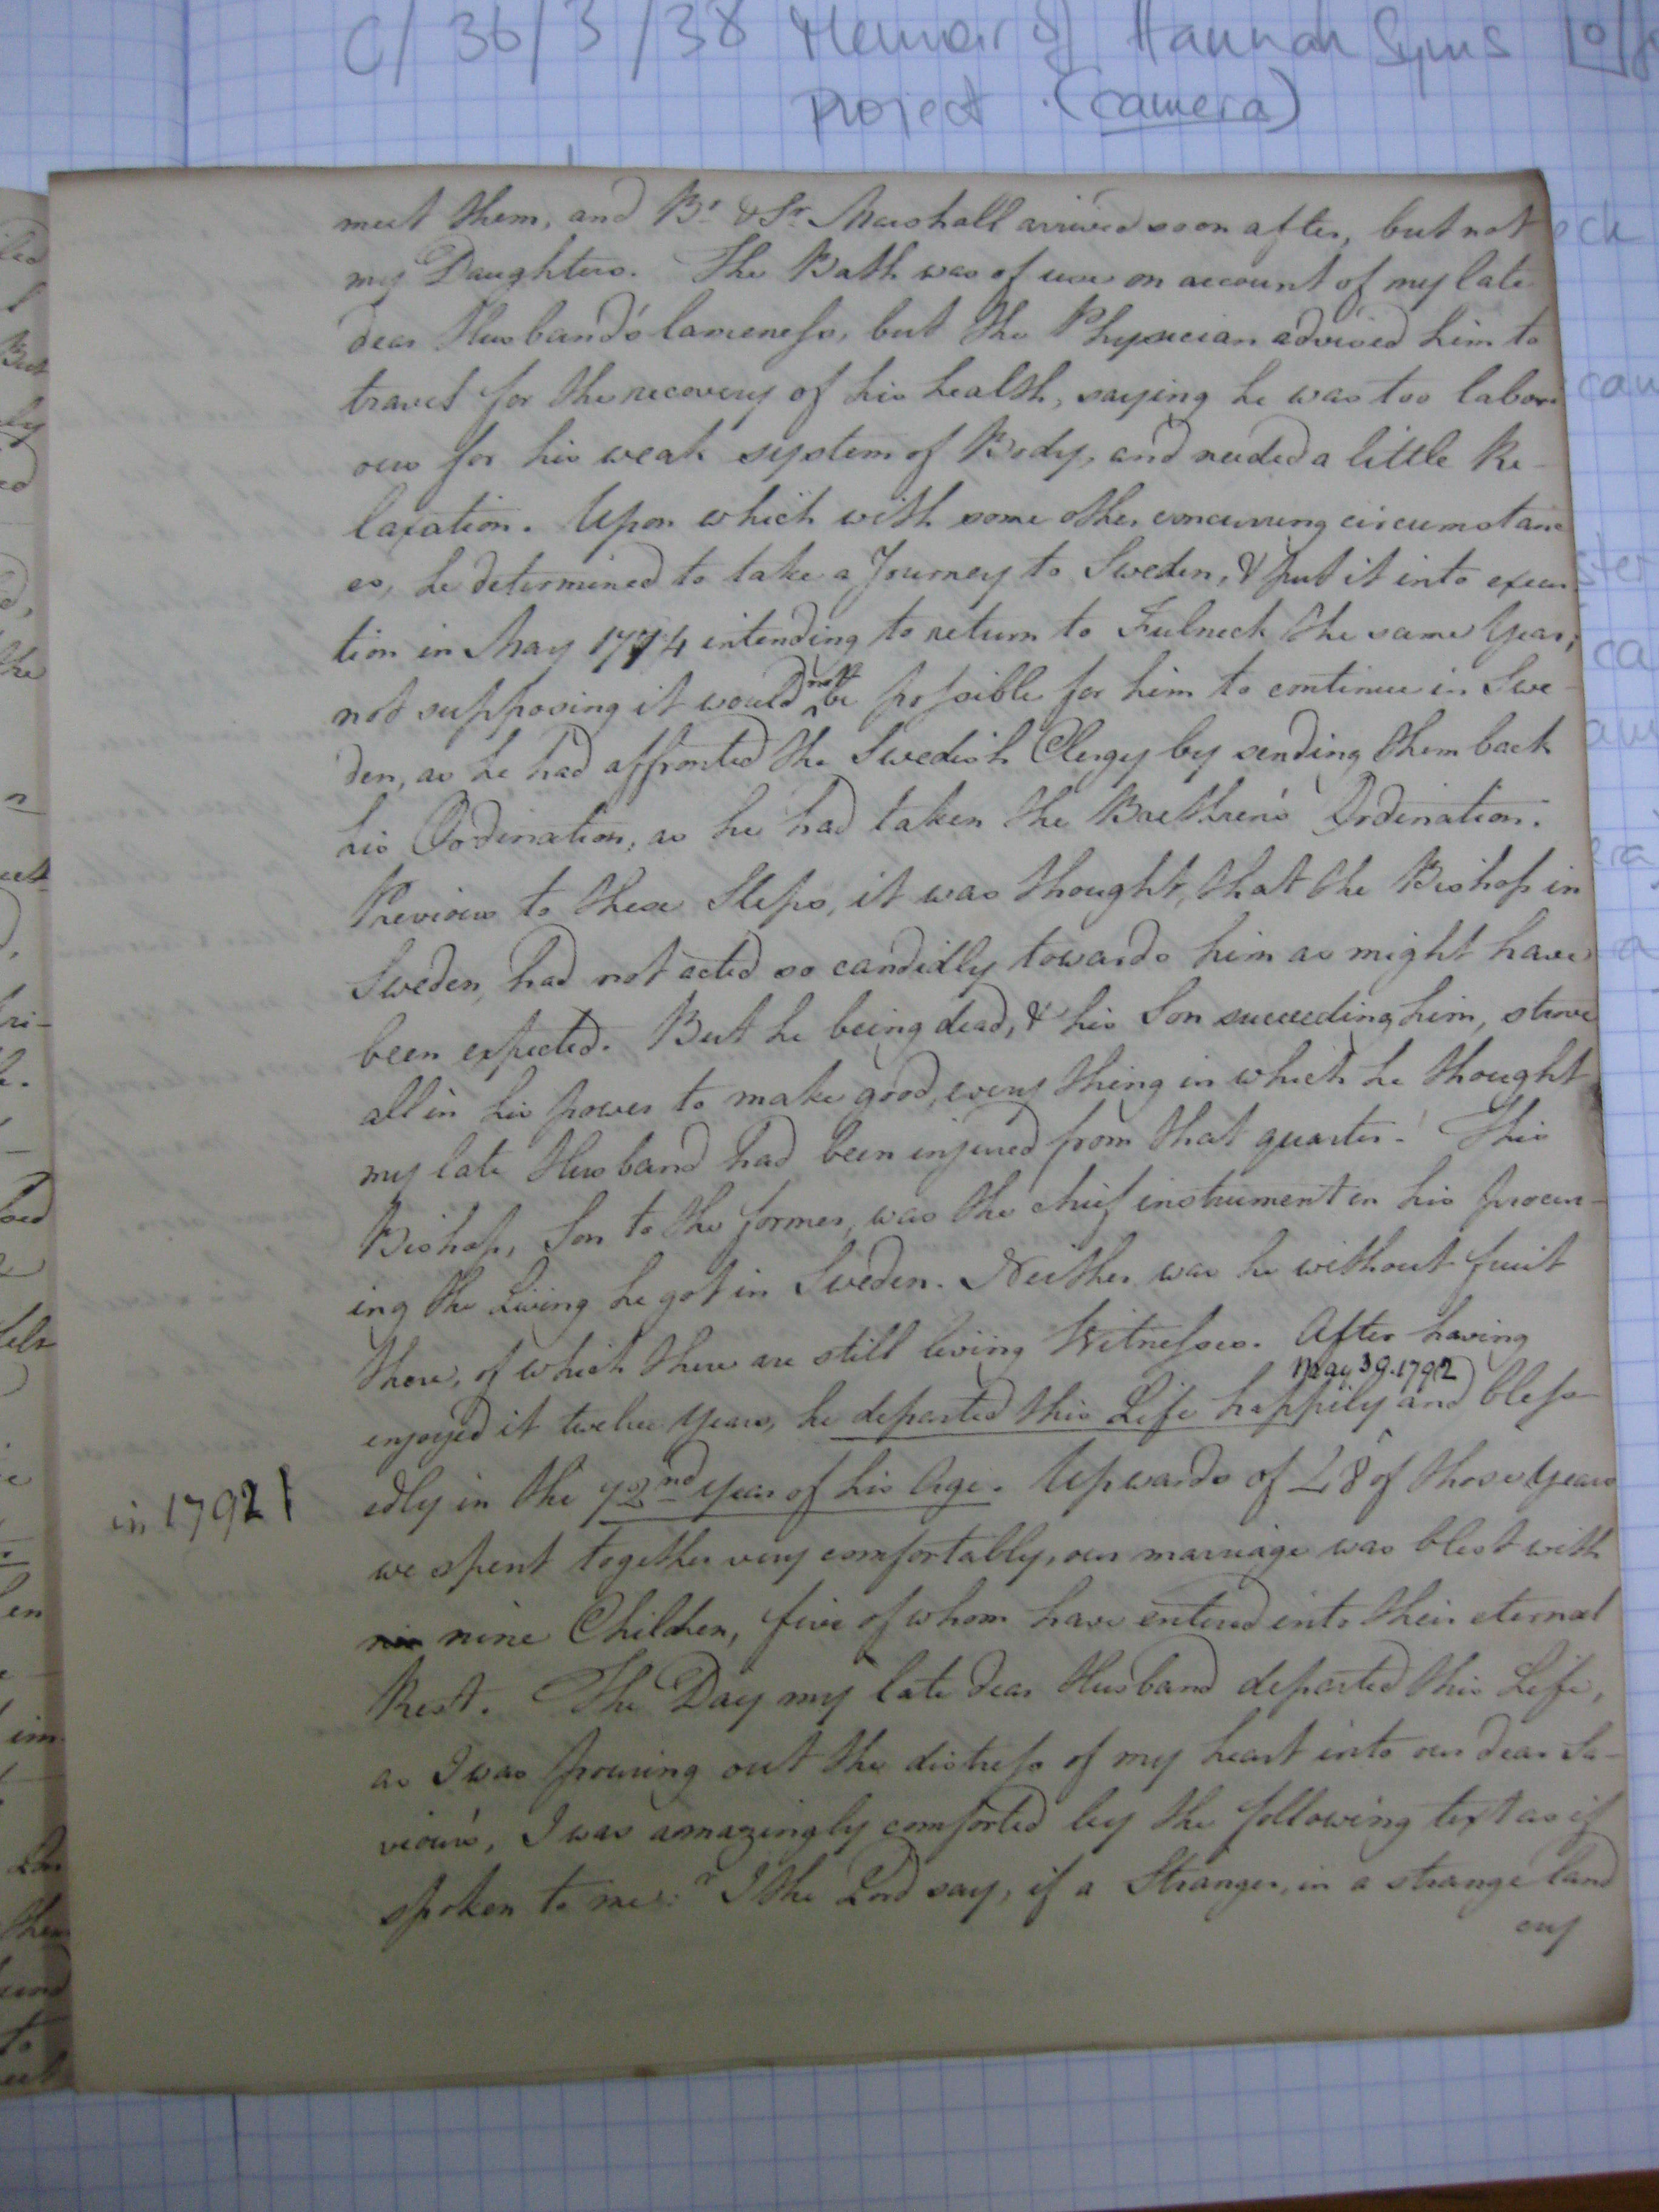 C/36/3/38 Memoir of Hannah Syms
Project (camera)
meet them, and Br. & Sr. Marshall arrived soon after, but not
my Daughters. The Bath was of use on account of my late
dear Husband's lameness, but the Physician advised him to
travel for the recovery of his health, saying he was too labori
ous for his weak system of Body, and needed a little Re-
laxation. Upon which with some other concurring circumstanc
es, he determined to take a Journey to Sweden, & put it into execu
tion in May 1774 intending to return to Fulneck the same Year,
not supposing it would not be possible for him to continue in Swe-
den, as he had affronted the Swedish Clergy by sending them back
his Ordination, as he had taken the Brethren's Ordination.
Previous to these Steps, it was thought, that the Bishop in
Sweden, had not acted so candidly towards him as might have
been expected. But he being dead, & his Son succeeding him, strove
all in his power to make good, every thing in which he thought
my late Husband had been injured from that quarter. This
Bishop, Son to the former, was the chief instrument in his procur-
ing the Living he got in Sweden. Neither was he without fruit
there, of which there are still living Witnesses. After having
May 39.1792
enjoyed it twelve Years, he departed this Life happily and bless
edly in the 72nd Year of his Age. Upwards of 28 of those Years
in 1792
we spent together very comfortably, our marriage was blest with
nin nine Children, five of whom have entered into their eternal
Rest. The Day my late dear Husband departed this Life,
as I was pouring out the distress of my heart into our dear Sa-
viour's, I was amazingly comforted by the following text as if
spoken to me: "I the Lord say, if a Stranger, in a strange land
cry